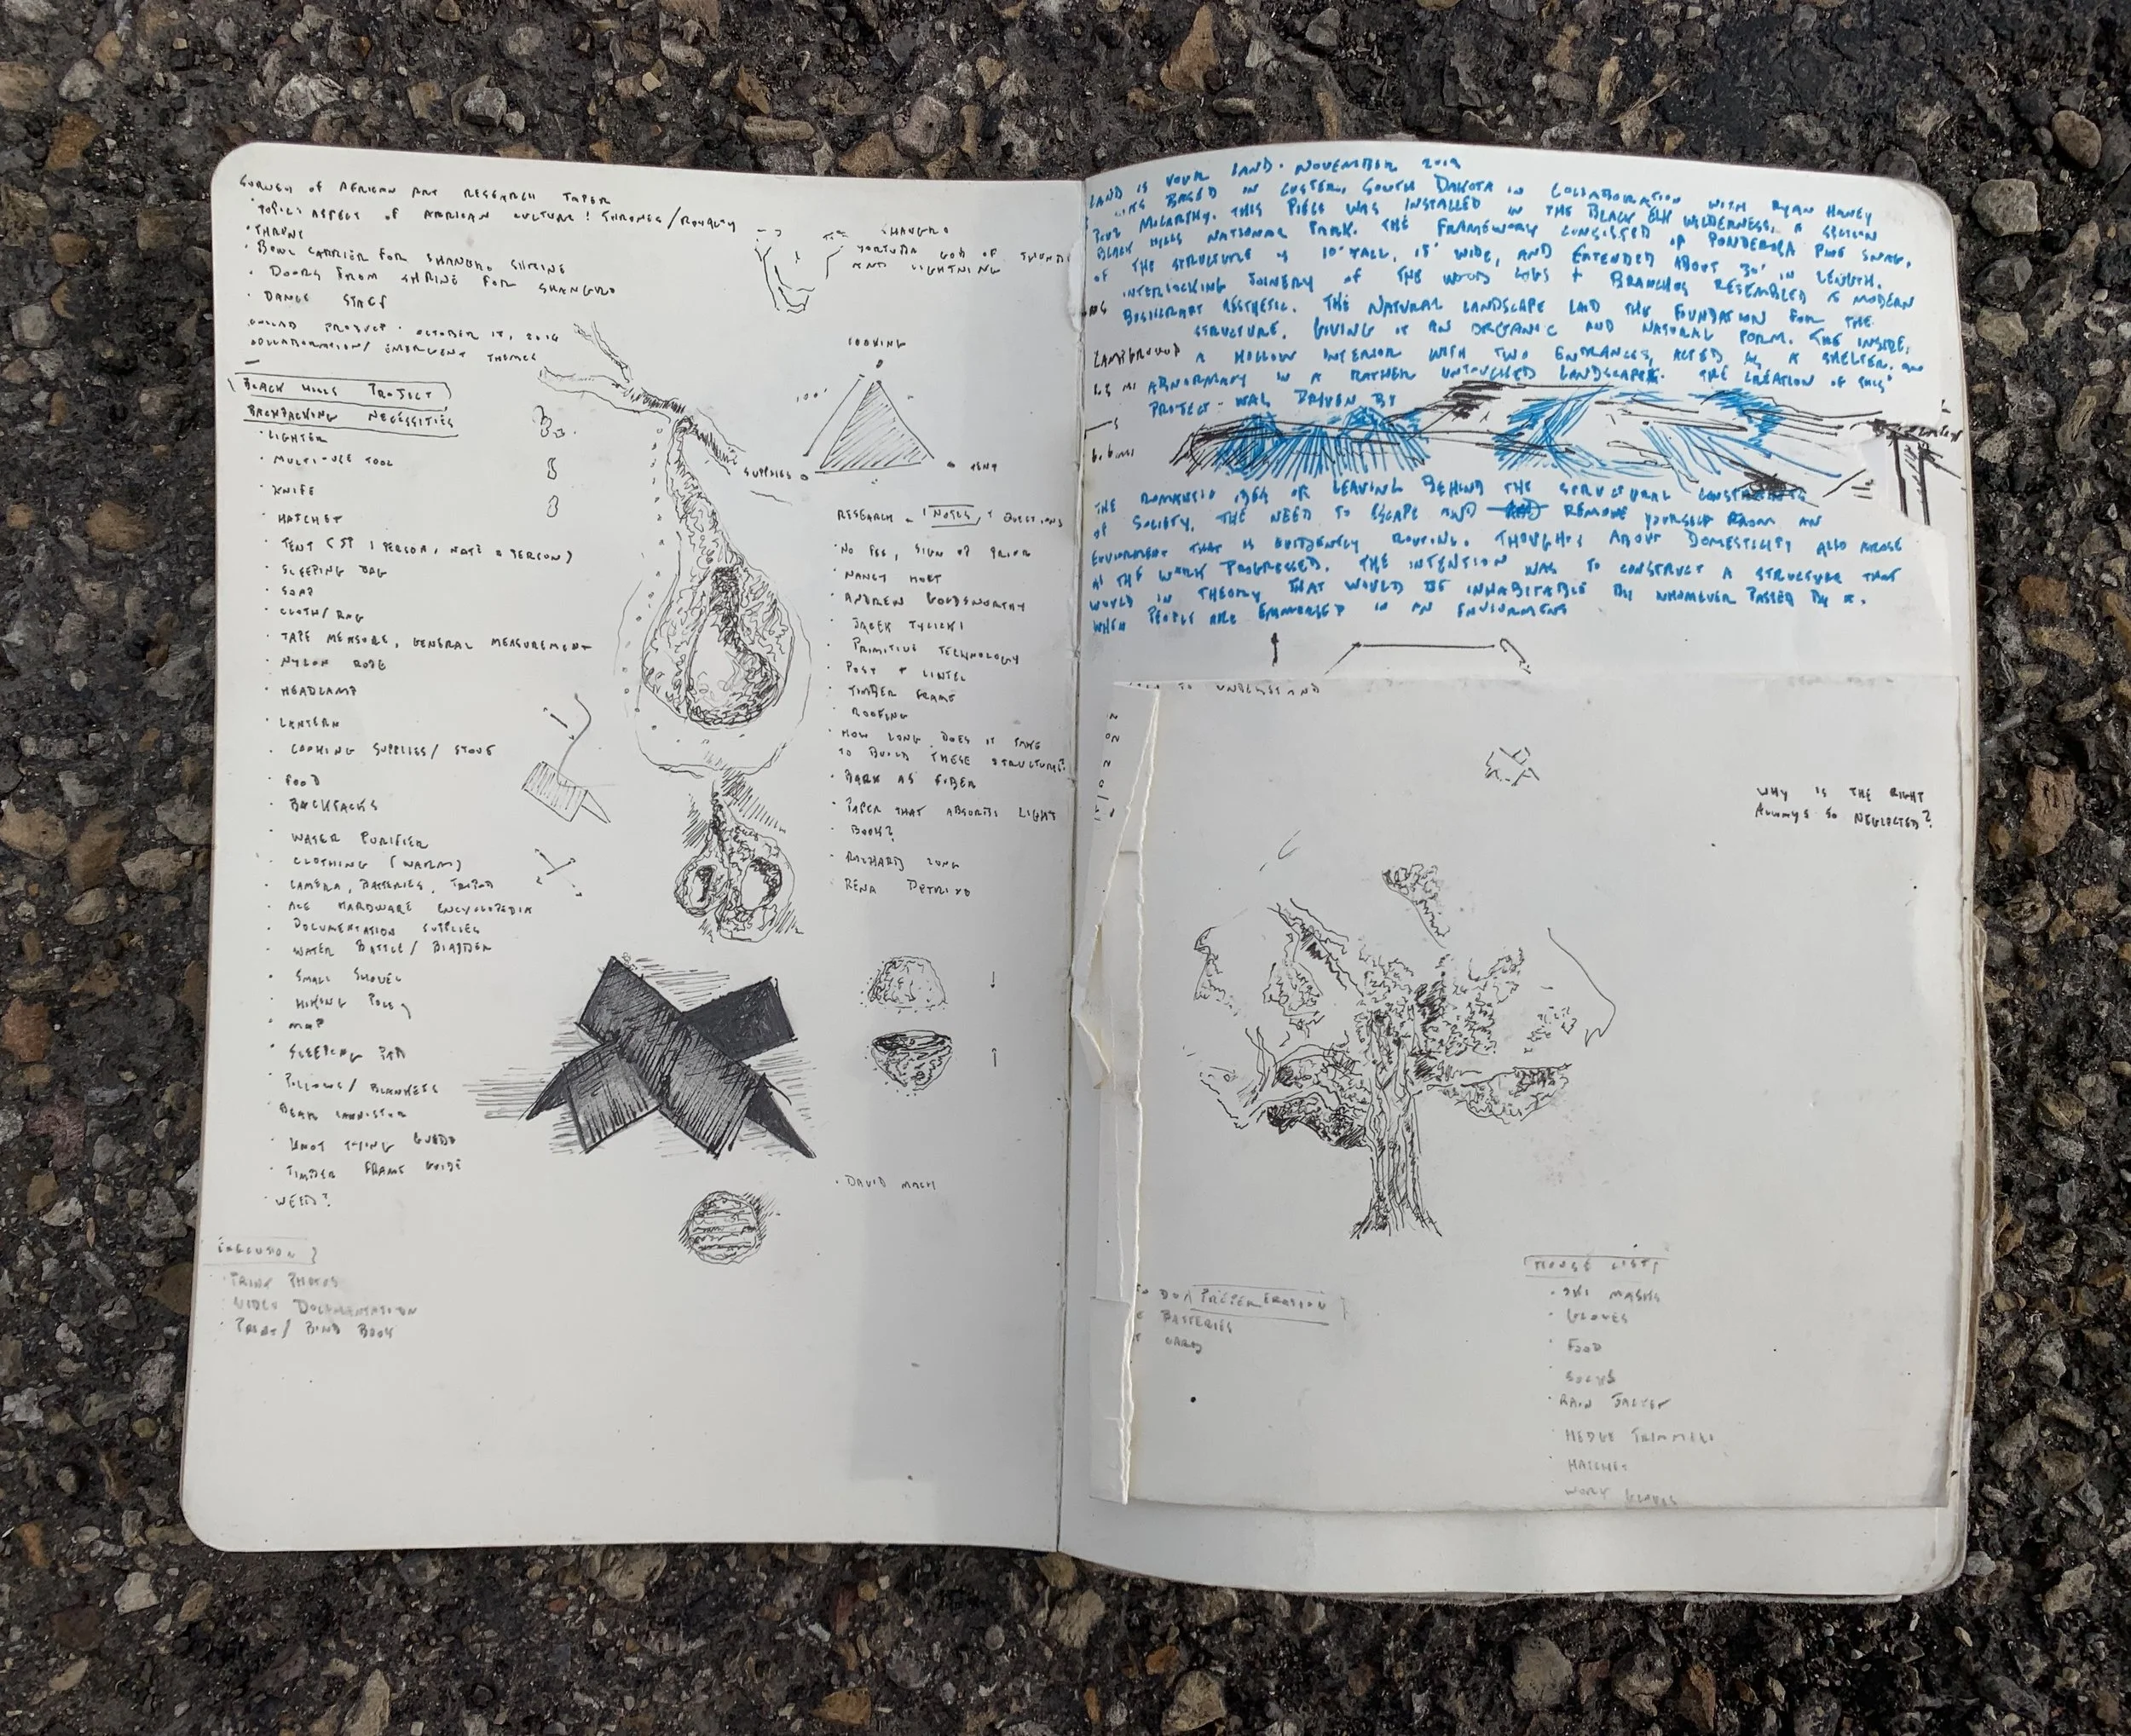 SURVEY OF AFRICAN ART RESEARCH PAPER
TOPIC: ASPECT OF AFRICAN CULTURE: THRONES/ROYALTY
· THRONE
· BOWL CARRIER FOR SHANGRO SHRINE
· DOORS FROM SHRINE FOR SHANGRO
· DANCE STAFF
COLLAB PRODUCT · OCTOBER
COLLABORATION/ EMERGENT THEMES
SHANGRO
YORTUBA GOD OF THUND
AND LIGHTNING
BLACK HILLS PROJECT
BACKPACKING NECESSITIES
· LIGHTER
· MULTI-USE TOOL
· KNIFE
· HATCHET
· TENT (1 PERSON, NATE 2 PERSON)
· SLEEPING BAG
· SOAP
· CLOTH/RAG
· TAPE MEASURE, GENERAL MEASUREMENT
· NYLON ROPE
· HEADLAMP
· LANTERN
· COOKING SUPPLIES/ STOVE
· FOOD
· BACKPACKS
· WATER PURIFIER
· CLOTHING (WARM)
· CAMERA, BATTERIES, TRIPOD
· ACE HARDWARE ENCYCLOPEDIA
· DOCUMENTATION SUPPLIES
· WATER BOTTLE/ BLADDER
· SMALL SHOVEL
· HIKING POLES
· MAP
· SLEEPING PAD
· PILLOWS/ BLANKETS
· BEAR CANNISTER
· KNOT TYING GUIDE
· TIMBER FRAME GUIDE
· WEED?
EXECUTION
· PRINT PHOTOS
· VIDEO DOCUMENTATION
· PRINT/ BIND BOOK
COOKING
100'
SUPPLIES
TENT
RESEARCH - NOTES, + QUESTIONS
· NO FEE, SIGN UP PRIOR
· NANCY HOLT
· ANDREW GOLDSWORTHY
· JACEK TYLICKI
· PRIMITIVE TECHNOLOGY
· POST + LINTEL
· TIMBER FRAME
· ROOFING
· HOW LONG DOES IT TAKE
TO BUILD THESE STRUCTURES?
· BARK AS FIBER
· PAPER THAT ABSORBS LIGHT
· BOOK?
· RICHARD LONG
· RENA DETRIXO
· DAVID MACH
LAND IS YOUR LAND. NOVEMBER 2019
BASED IN CUSTER, SOUTH DAKOTA IN COLLABORATION WITH RYAN HANEY
MCCARTHY. THIS PIECE WAS INSTALLED IN THE BLACK ELK WILDERNESS, A SECTION
BLACK HILLS NATIONAL PARK. THE FRAMEWORK CONSISTED OF PONDEROSA PINE SNAG.
OF THE STRUCTURE IS 10' TALL, 15' WIDE, AND EXTENDED ABOUT 30' IN LENGTH.
INTERLOCKING JOINERY OF THE WOOD LOGS + BRANCHES RESEMBLED A MODERN
BUSHCRAFT AESTHETIC. THE NATURAL LANDSCAPE LAID THE FOUNDATION FOR THE
STRUCTURE, GIVING IT AN ORGANIC AND NATURAL FORM. THE INSIDE,
CAMPGROUND
A HOLLOW INTERIOR WITH TWO ENTRANCES, ACTED AS A SHELTER, AN
1.5 MI
ABNORMANY IN A RATHER UNTOUCHED LANDSCAPE. THE CREATION OF THIS
PROJECT WAS DRIVEN BY
6.6 MI
THE ROMANTIC IDEA OF LEAVING BEHIND THE STRUCTURAL CONSTRAINTS
OF SOCIETY. THE NEED TO ESCAPE AND REMOVE YOURSELF FROM AN
ENVIORMENT THAT IS EVIDENTLY ROUTINE. THOUGHTS ABOUT DOMESTICITY ALSO AROSE
AS THE WORK PROGRESSED. THE INTENTION WAS TO CONSTRUCT A STRUCTURE THAT
WOULD IN THEORY THAT WOULD BE INHABITABLE BY WHOMEVER PASSED BY IT.
WHEN PEOPLE ARE EMMORSED IN AN ENVIORMENT
TO UNDERSTAND
WHY IS THE RIGHT
ALWAYS SO NEGLECTED?
DO/
BATTERIES
CARDS
HOUSE LIST
· SKI MASKS
· GLOVES
· FOOD
· SOCKS
· RAIN JACKET
· HEDGE TRIMMERS
· HATCHET
WORK GLOVES